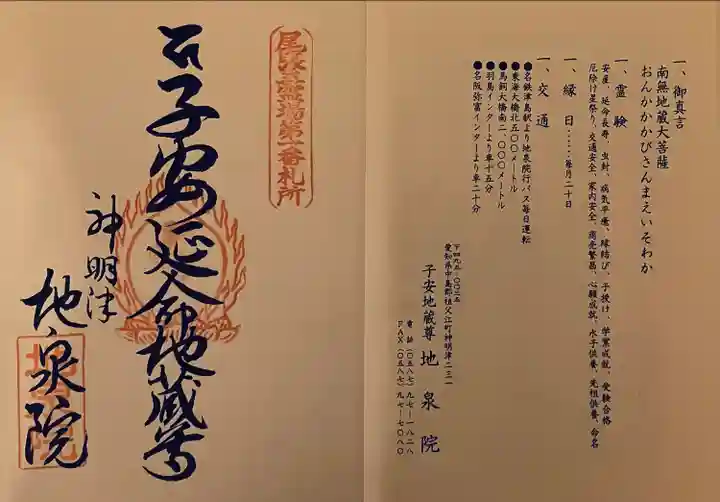 一、御真言
南無地蔵大菩薩
おんかかかびさんまえいそわか
一、霊験
安産、延命長寿、虫封、病気平癒、縁結び、子授け、学業成就、受験合格
厄除け星祭り、交通安全、家内安全、商売繁昌、心願成就、水子供養、先祖供養、命名
一、縁日……毎月二十日
一、交通
●名鉄津島駅より地泉院行バス毎日運転
●東海大橋北五〇〇メートル
●馬飼大橋南二、〇〇〇メートル
●羽島インターより車十五分
●名阪弥富インターより車二十分
〒四九五-〇〇三五
愛知県中島郡祖父江町神明津二三一
子安地蔵尊 地泉院
電話(〇五八七)九七-一八二八
FAX(〇五八七)九七-七〇八〇
第一番札所
子安延命地蔵尊
神明津
地泉院